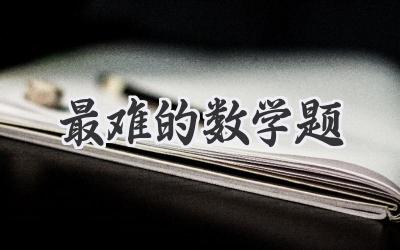 最难的数学题